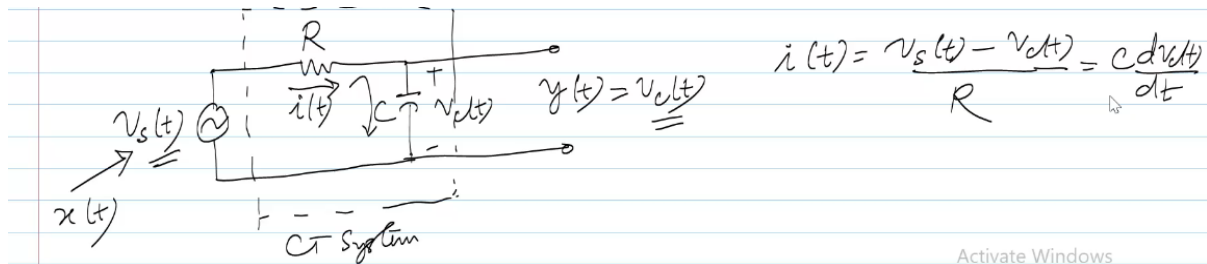 R
i(t)
C
+
v_c(t)
-
v_s(t)
x(t)
y(t) = v_c(t)
CT System
i(t) = \frac{v_s(t) - v_c(t)}{R} = C \frac{dv_c(t)}{dt}
Activate Windows